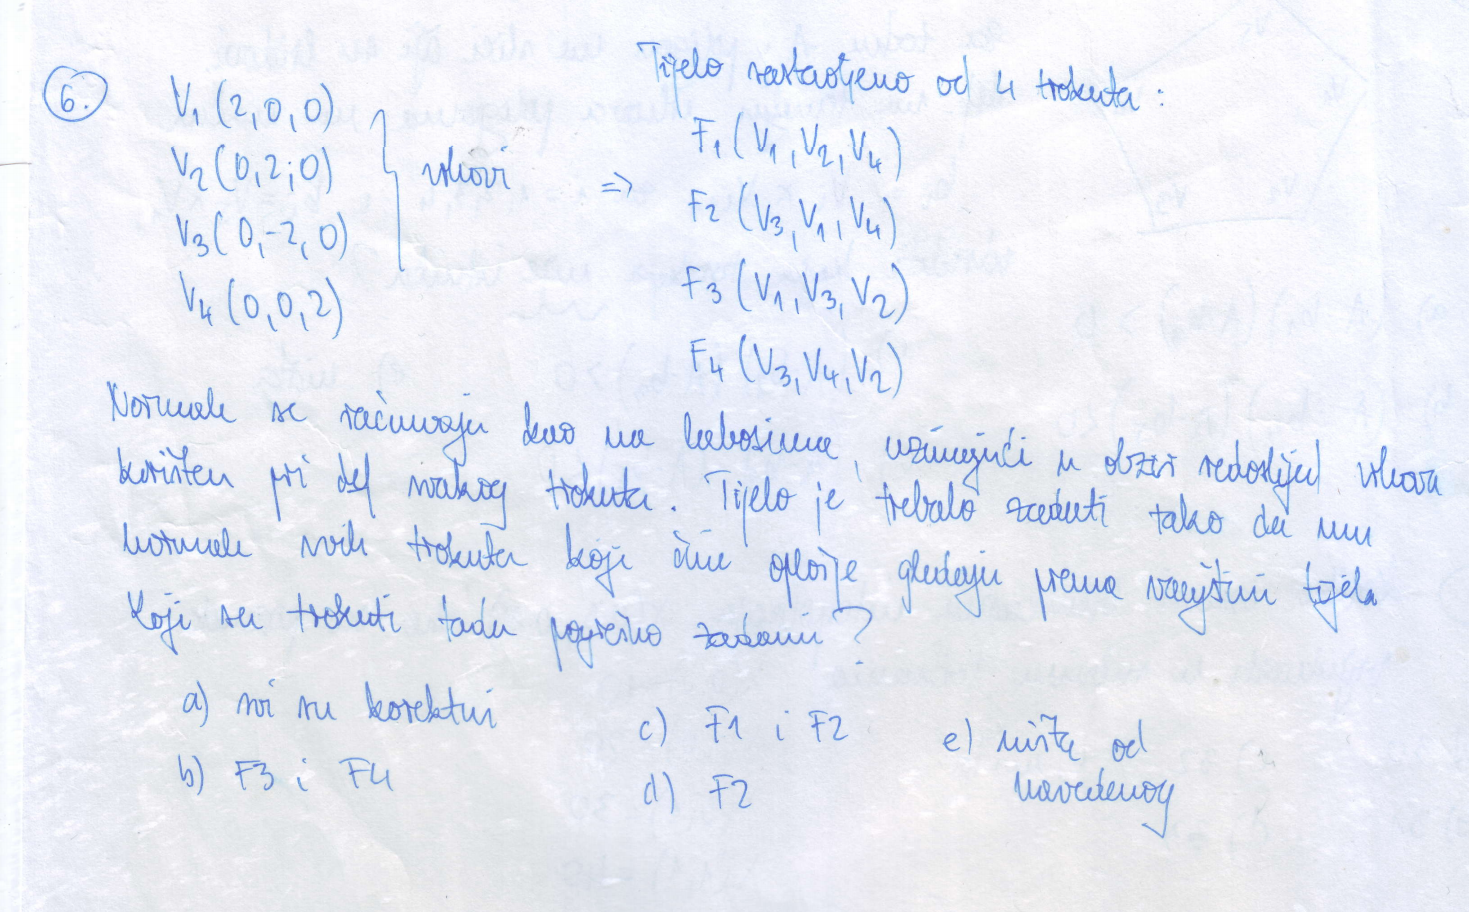 6.
V1 (2,0,0)
V2 (0,2,0)
V3 (0,-2,0)
V4 (0,0,2)
vrhovi
=>
Tijelo sastavljeno od 4 trokuta :
F1 (V1, V2, V4)
F2 (V3, V1, V4)
F3 (V1, V3, V2)
F4 (V3, V4, V2)
Normale se računaju kao na labosima, uzimajući u obzir redoslijed vrhova
korišten pri def svakog trokuta. Tijelo je trebalo zadati tako da mu
normale svih trokuta koji čine oplošje gledaju prema vanjštini tijela
Koji su trokuti tada pogrešno zadani ?
a) svi su korektni
b) F3 i F4
c) F1 i F2
d) F2
e) ništa od
navedenog